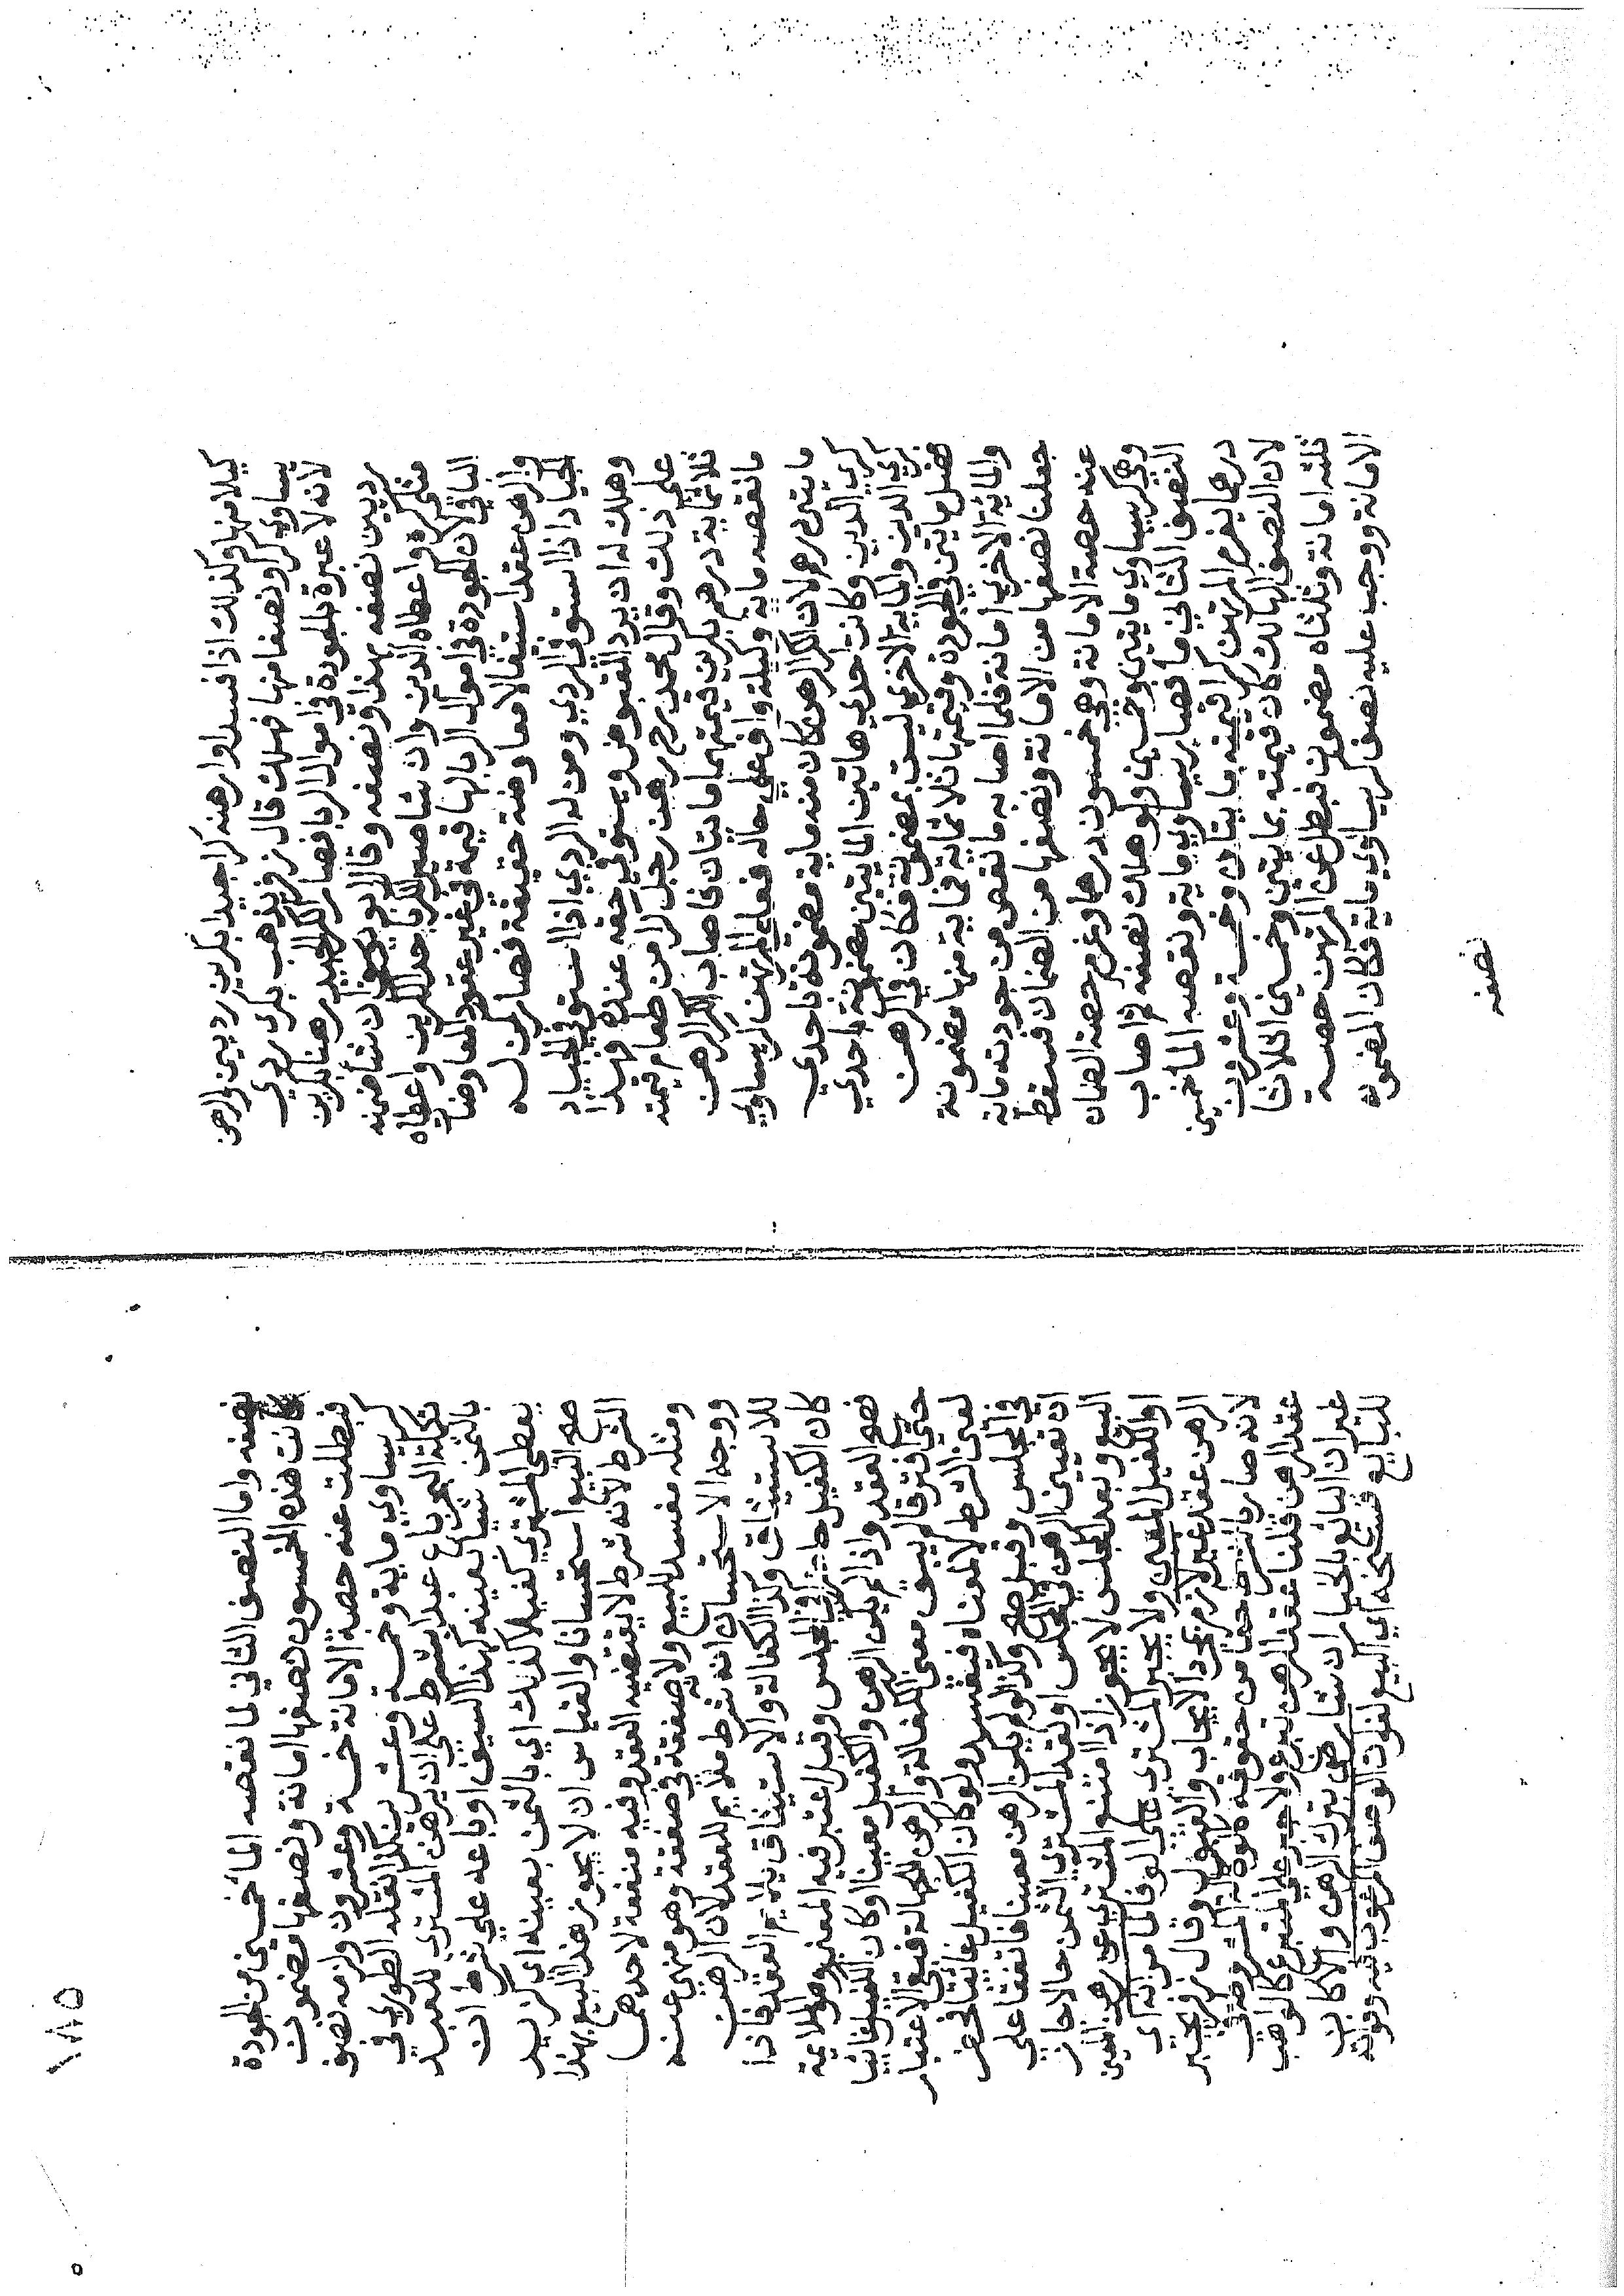 كيلا منها وكذلك اذا فسد او ارهنه كرا جيدا بكرين رديين والرهن
يساوي كرا ونصفا منها فهلك قال زفر يذهب بكري ردي
لانه لا عبرة للجودة في اموال الربا فصار الكر الجيد رهنا بكرين
رديين نصفه بهذا ونصفه وقال ابو يوسف ان شا ضمنه
مثل كره واعطاه الدين وان شا صير الكر باحد الكرين واعطاه
الباقي لان الجودة في اموال الربا لها قيمة في غير عقود المعاوضات
والرهن عقد استيفا لا معاوضة حقيقة فصار كمن له
الجياد اذا استوفى الردي ومن له الردي اذا استوفى الجياد
وهلك له ان يرد المقبوض ويستوفي حقه عنده فهذا
على ذلك وقال محمد رحم رهن رجل كرا من طعام قيمته
ثلاثماية درهم بكرين قيمتهما مايتان فاصاب الكر الرهن
ما نقصه ماية وكيله واف على حاله فعلى المرتهن كر يساوي
مايتي درهم لان الكر الرهن كان منه ماية مضمونة باحدي
كري الدين وكانت احدي هاتين المايتين مضمونة باحدي
كري الدين والماية الاخرى ليست بمضمونة فكان في الرهن
فضل مايتي في الجودة وقيمتها ثلاثماية فماية منها مضمونة
والماية الاخري امانة فلما اصابه ما نقص من جودته ماية
جعلنا نصفها من الامانة ونصفها من الضمان فسقط
عنه حصة الامانة وهي خمسون درهما وغرم حصة الضمان
وهي كر يساوي مايتين وخمسين ولو هلك نصفه ثم اصاب
النصف الثاني ما فصار يساوي ماية ونقصه الما خمسين
درهما يغرم المرتهن كرا قيمته مايتان وخمسة وعشرون
لان النصف الهالك كان قيمته بمايتين وخمسين اثلاثا
ثلثه امانة وثلثاه مضمون فبطل عن المرتهن حصة
الامانة ووجب عليه نصف كر يساوي ماية فكان المضمونة
نصفه
١٨٥
نصفه واما النصف الثاني لما نقصه الما خمسين من الجودة
كانت هذه الخمسون نصفها امانة ونصفها مضمون
فبطلت عنه حصة الامانة خمسة وعشرون ولزمه نصف
كر يساوي ماية وخمسة وعشرين كذا نقله الطوري في
تكملة البحر باع عبدا بشرط على ان يرهن المشتري للعبد
بالثمن شيا بعينه كهذا السيف او باعه على شرط ان
يعطي المشتري كفيلا كذلك اي بالثمن بعينه اي كزيد
صح البيع استحسانا والقياس ان لا يجوز هذا البيع بهذا
الشرط لانه شرط لا يقتضيه العقد وفيه منفعة لاحدهما
ومثله مفسد للبيع ولانه صفقة في صفقة وهو منهي عنه
ووجه الاستحسان انه شرط ملايم للعقد لان الرهن
للاستيثاق وكذا الكفالة والاستيثاق يلايم العقد فاذا
كان الكفيل حاضرا في المجلس وقبل اعتبر فيه المعنى وهو الملايمة
فصح العقد واذا لم يكن الرهن والكفيل معينا او كان الكفيل غايبا
حتى افترقا لم يبق معنى الكفالة والرهن للجهالة فبقي الاعتبار
لعين الشرط لا لمعناه فيفسد ولو كان الكفيل غايبا فحضر
في المجلس وقبل صح وكذا لو لم يكن الرهن معينا فاتفقا على
ان تعيين الرهن في المجلس او نقد المشتري الثمن حالا جاز
البيع وبعد المجلس لا يجوز اذا امتنع المشتري عن رهن المعين
او الكفيل المعين ولا يجبر المشتري على الوفا لما مر انه اي
الرهن عقد غير لازم بمجرد الايجاب والقبول وقال زفر يجبر
لانه صار بالشرط حقا من حقوقه كالوكالة المشروطة في
عقد الرهن قلنا عقد الرهن تبرع ولا جبر على المتبرع كالواهب
غير ان البائع بالخيار ان شا رضي بترك الرهن والا كان
للبايع فسخه اي البيع لفوات الوصف المرغوب فيه وقوله